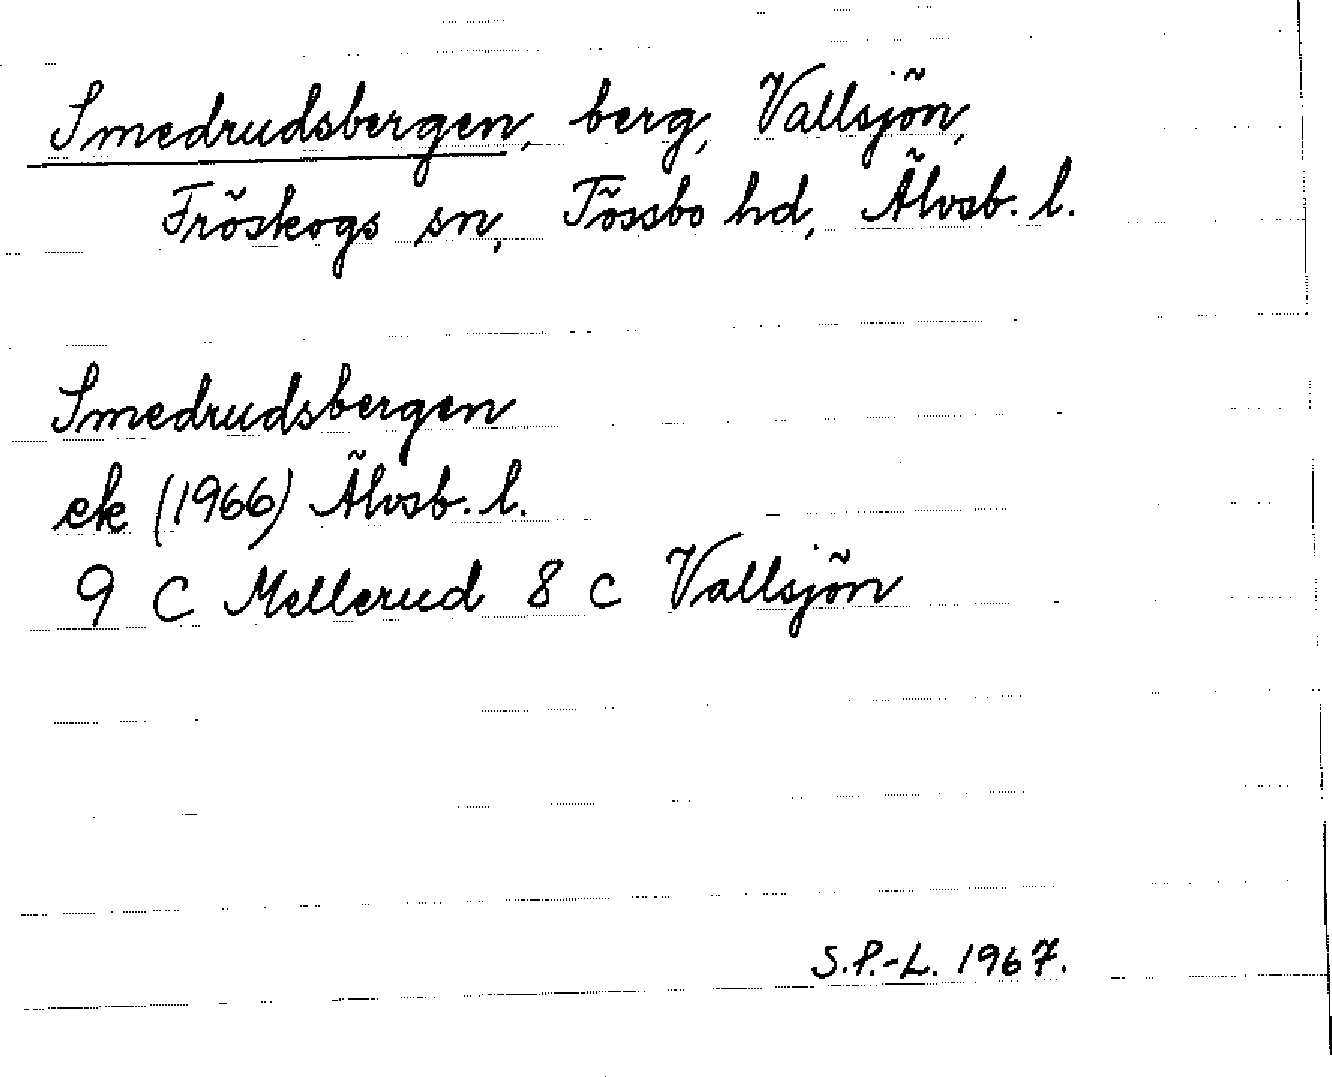 Smedrudsbergen, berg, Vallsjön,
Fröskogs sn, Tössbo hd, Älvsb. l.
Smedrudsbergen
ek (1966) Älvsb. l.
9 C Mellerud 8 c Vallsjön
S.P.-L. 1967.